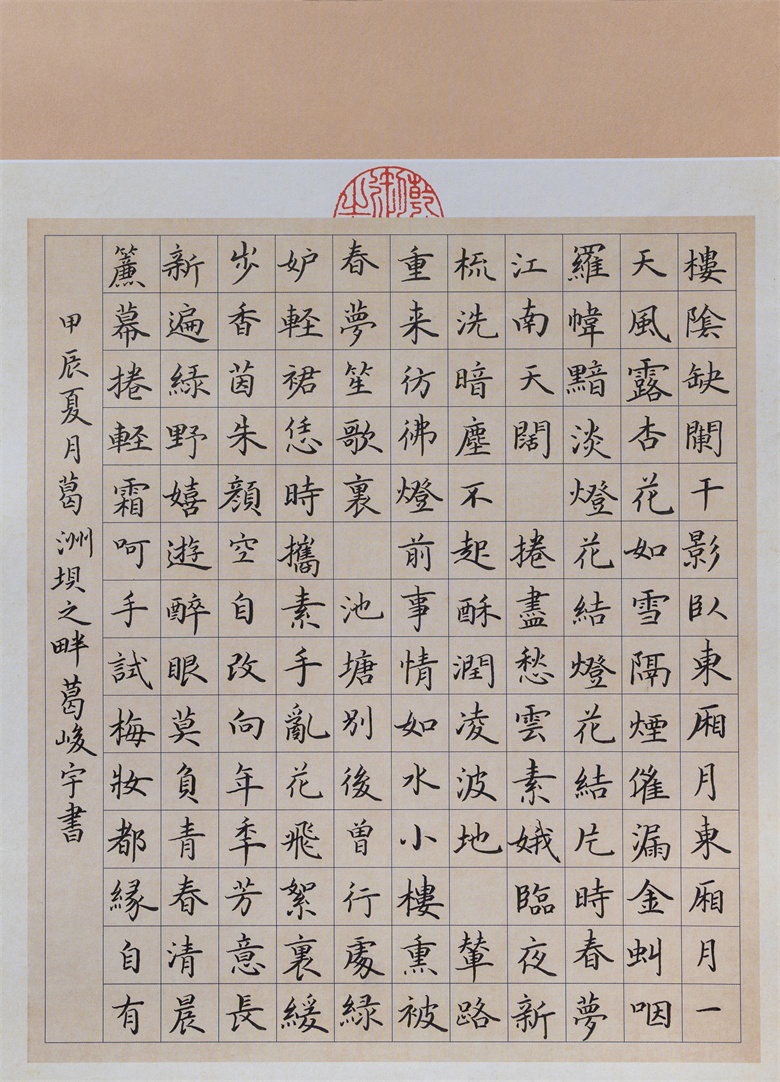 樓陰缺闌干影臥東厢月東厢月一
天風露杏花如雪隔煙催漏金虯咽
羅幃黯淡燈花結燈花結片時春夢
江南天闊 捲盡愁雲素娥臨夜新
梳洗暗塵不起酥潤凌波地 輦路
重来彷彿燈前事情如水小樓熏被
春夢笙歌裏 池塘别後曾行處緑
妒輕裙恁時攜素手亂花飛絮裏緩
步香茵朱顔空自改向年秊芳意長
新遍緑野嬉遊醉眼莫負青春清晨
簾幕捲輕霜呵手試梅妝都緣自有
甲辰夏月葛洲坝之畔葛峻宇書